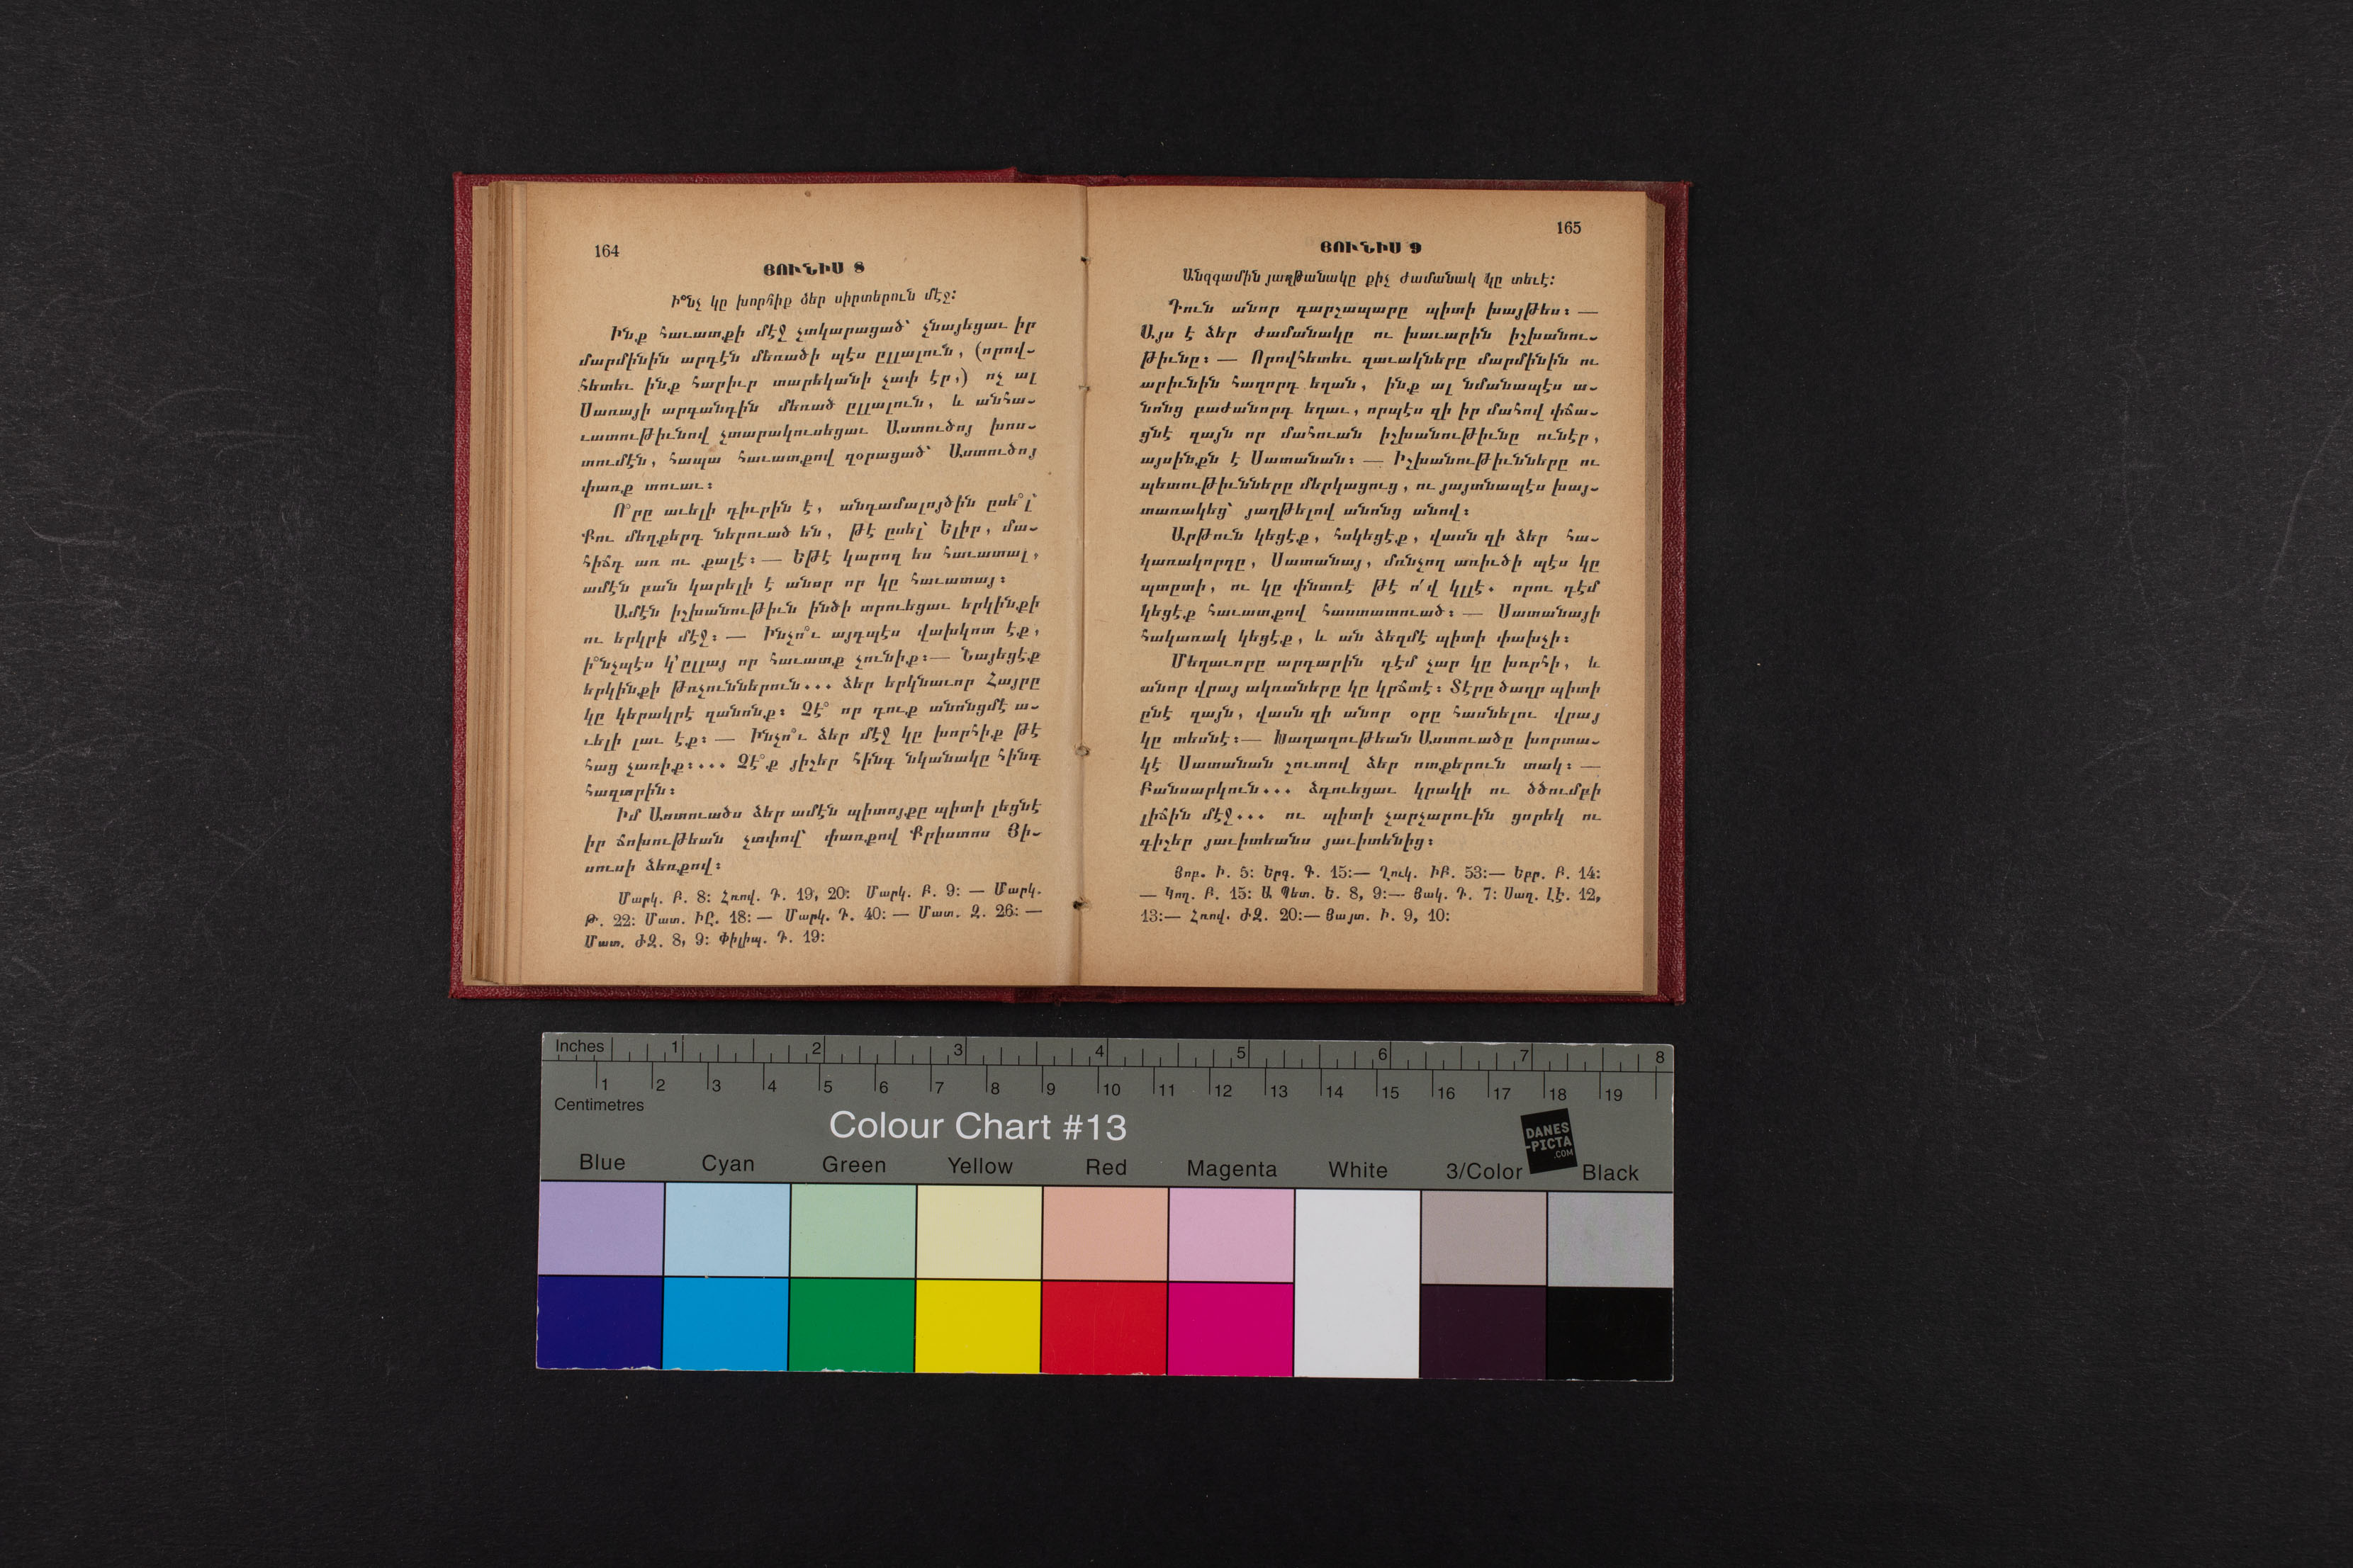 164
ՅՈՒՆԻՍ 8
Ի՞նչ կը խորհիք ձեր սիրտերուն մէջ։
Ինք հաւատքի մէջ չտկարացած՝ չնայեցաւ իր
մարմինին արդէն մեռածի պէս ըլլալուն, (որով-
հետեւ ինք հարիւր տարեկանի չափ էր,) ոչ ալ
Սառայի արգանդին մեռած ըլլալուն, և անհա-
ւատութիւնով չտարակուսեցաւ Աստուծոյ խոս-
տումէն, հապա հաւատքով զօրացած՝ Աստուծոյ
փառք տուաւ։
Ո՞րը աւելի դիւրին է, անդամալոյծին ըսե՞լ՝
Քու մեղքերդ ներուած են, թէ ըսել՝ Ելիր, մա-
հիճդ առ ու քալէ։ — Եթէ կարող ես հաւատալ,
ամէն բան կարելի է անոր որ կը հաւատայ։
Ամէն իշխանութիւն ինծի տրուեցաւ երկինքի
ու երկրի մէջ։ — Ինչո՞ւ այդպէս վախկոտ էք,
ի՞նչպէս կ՚ըլլայ որ հաւատք չունիք։— Նայեցէք
երկինքի թռչուններուն... ձեր երկնաւոր Հայրը
կը կերակրէ զանոնք։ Չէ՞ որ դուք անոնցմէ ա-
ւելի լաւ էք։ — Ինչո՞ւ ձեր մէջ կը խորհիք թէ
հաց չառիք։... Չէ՞ք յիշեր հինգ նկանակը հինգ
հազարին։
Իմ Աստուածս ձեր ամէն պիտոյքը պիտի լեցնէ
իր ճոխութեան չափով՝ փառքով Քրիստոս Յի-
սուսի ձեռքով։
Մարկ. Բ. 8։ Հռով. Դ. 19, 20։ Մարկ. Բ. 9։ — Մարկ.
Թ. 22։ Մատ. ԻԸ. 18։ — Մարկ. Դ. 40։ — Մատ. Զ. 26։ —
Մատ. ԺԶ. 8, 9։ Փիլիպ. Դ. 19։
165
ՅՈՒՆԻՍ 9
Անզգամին յաղթանակը քիչ ժամանակ կը տեւէ։
Դուն անոր գարշապարը պիտի խայթես։ —
Այս է ձեր ժամանակը ու խաւարին իշխանու-
թիւնը։ — Որովհետեւ զաւակները մարմինին ու
արիւնին հաղորդ եղան, ինք ալ նմանապէս ա-
նոնց բաժանորդ եղաւ, որպէս զի իր մահով փճա-
ցնէ զայն որ մահուան իշխանութիւնը ունէր,
այսինքն է Սատանան։ — Իշխանութիւնները ու
պետութիւնները մերկացուց, ու յայտնապէս խայ-
տառակեց՝ յաղթելով անոնց անով։
Արթուն կեցէք, հսկեցէք, վասն զի ձեր հա-
կառակորդը, Սատանայ, մռնչող առիւծի պէս կը
պտըտի, ու կը փնտռէ թէ ո՛վ կլլէ. որու դէմ
կեցէք հաւատքով հաստատուած։ — Սատանայի
հակառակ կեցէք, և ան ձեղմէ պիտի փախչի։
Մեղաւորը արդարին դէմ չար կը խորհի, և
անոր վրայ ակռաները կը կրճտէ։ Տէրը ծաղր պիտի
ընէ զայն, վասն զի անոր օրը հասնելու վրայ
կը տեսնէ։— Խաղաղութեան Աստուածը խորտա-
կէ Սատանան շուտով ձեր ոտքերուն տակ։ —
Բանսարկուն... ձգուեցաւ կրակի ու ծծումբի
լիճին մէջ... ու պիտի չարչարուին ցորեկ ու
գիշեր յաւիտեանս յաւիտենից։
Յոբ. Ի. 5։ Երգ. Գ. 15։— Ղուկ. ԻԲ. 53։— Եբր. Բ. 14։
— Կող. Բ. 15։ Ա Պետ. Ե. 8, 9։— Յակ. Դ. 7։ Սաղ. ԼԷ. 12,
13։— Հռով. ԺԶ. 20։— Յայտ. Ի. 9, 10։
Inches 1 2 3 4 5 6 7 8
1 2 3 4 5 6 7 8 9 10 11 12 13 14 15 16 17 18 19
Centimetres
Colour Chart #13
DANES
-PICTA
.COM
Blue Cyan Green Yellow Red Magenta White 3/Color Black